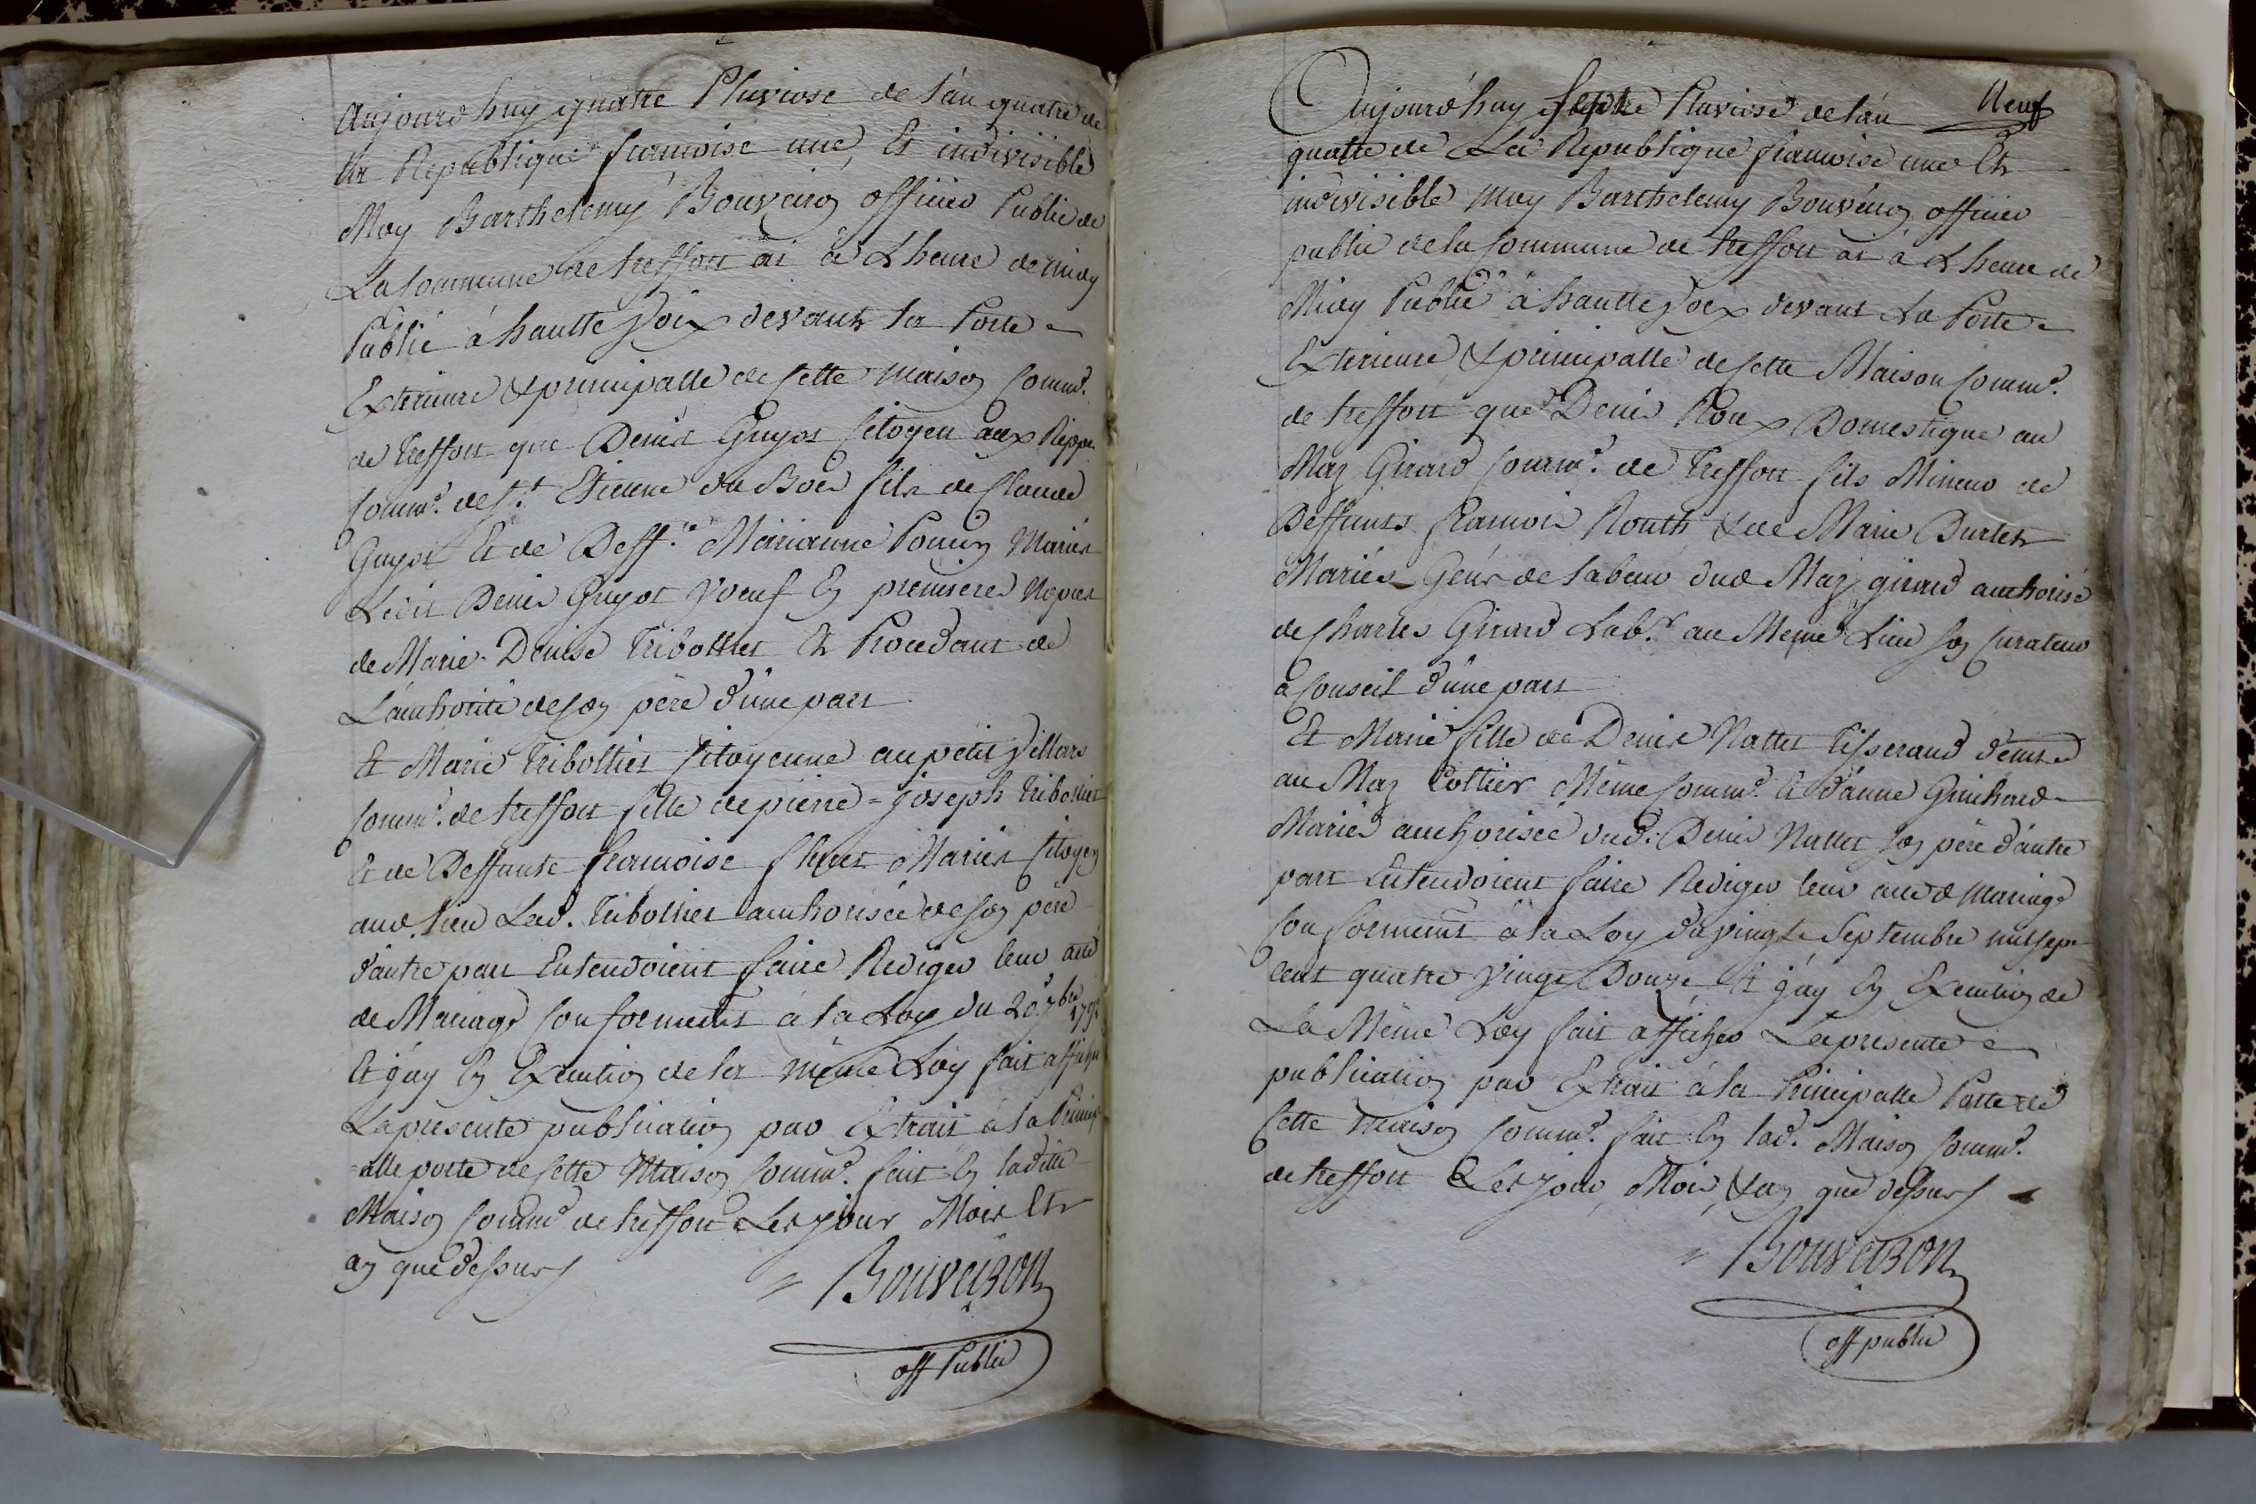 Aujourd'huy quatre Pluviose de l'an quatre de
la Republique francoise une, Et indivisible
Moy Barthelemy Bouveiron officier Public de
La Commune de treffort ai à L'heure de midy
Publié à hautte Voix devant la Porte
Exterieure & principalle de Cette maison Comm.e
de treffort que Denis Guyot Citoyen aux Rippes
Comm.e de S.t Etienne du Bois fils de Claude
Guyot Et de Deff.te Marianne Poncin Mariés
Ledit Denis Guyot Voeuf En premieres Nopces
de Marie Denise Tribollet Et Procedant de
L'authorité de son père d'une part
Et Marie Tribollet Citoyenne au petit Villars
Comm.e de treffort fille de pierre = joseph Tribollet
Et de Deffunte francoise Mariés Citoyen
aud. lieu Lad. Tribollet authorisée de son père
d'autre part Entendoient faire Rediger leur acte
de Mariage Conformément à la Loy du 20 7bre 1792
Et j'ay En Execution de la même Loy fait afficher
La presente publication par Extrait à la Princip
=alle porte de Cette Maison Comm.e fait En laditte
Maison Comm.e de treffort Les jour Mois Et
an que dessus
Bouveiron
off Public
Neuf
Aujourd'huy Pluviose de l'an
quatre de La Republique francoise une Et
indivisible Moy Barthelemy Bouveiron officier
public de la Commune de treffort ai à L'heure de
Midy Publié à hautte Voix devant La Porte
Exterieure & principalle de Cette Maison Comm.e
de treffort que Denis Roux Domestique au
Maz Girard Comm.e de Treffort fils Mineur de
Deffunts francois Routh & de Marie Burlet
Mariés Gens de labeur dud. Maz girard authorisé
de Charles Girard Lab.r au Meme Lieu son Curateur
à Conseil d'une part
Et Marie fille de Denis Nallet Tisserand demt
au Maz Pottier Même Comm.e Et d'anne Guichard
Mariés authorisée dud. Denis Nallet son père d'autre
part Entendoient faire Rediger leur acte de Mariage
Conformément à la Loy du vingt Septembre mil sept
cent quatre Vingt Douze Et j'ay En Execution de
La Même Loy fait afficher La presente
publication par Extrait à la Principalle Porte de
Cette Maison Comm.e fait En lad. Maison Comm.e
de treffort Les jour, Mois, & an que dessus
Bouveiron
off public